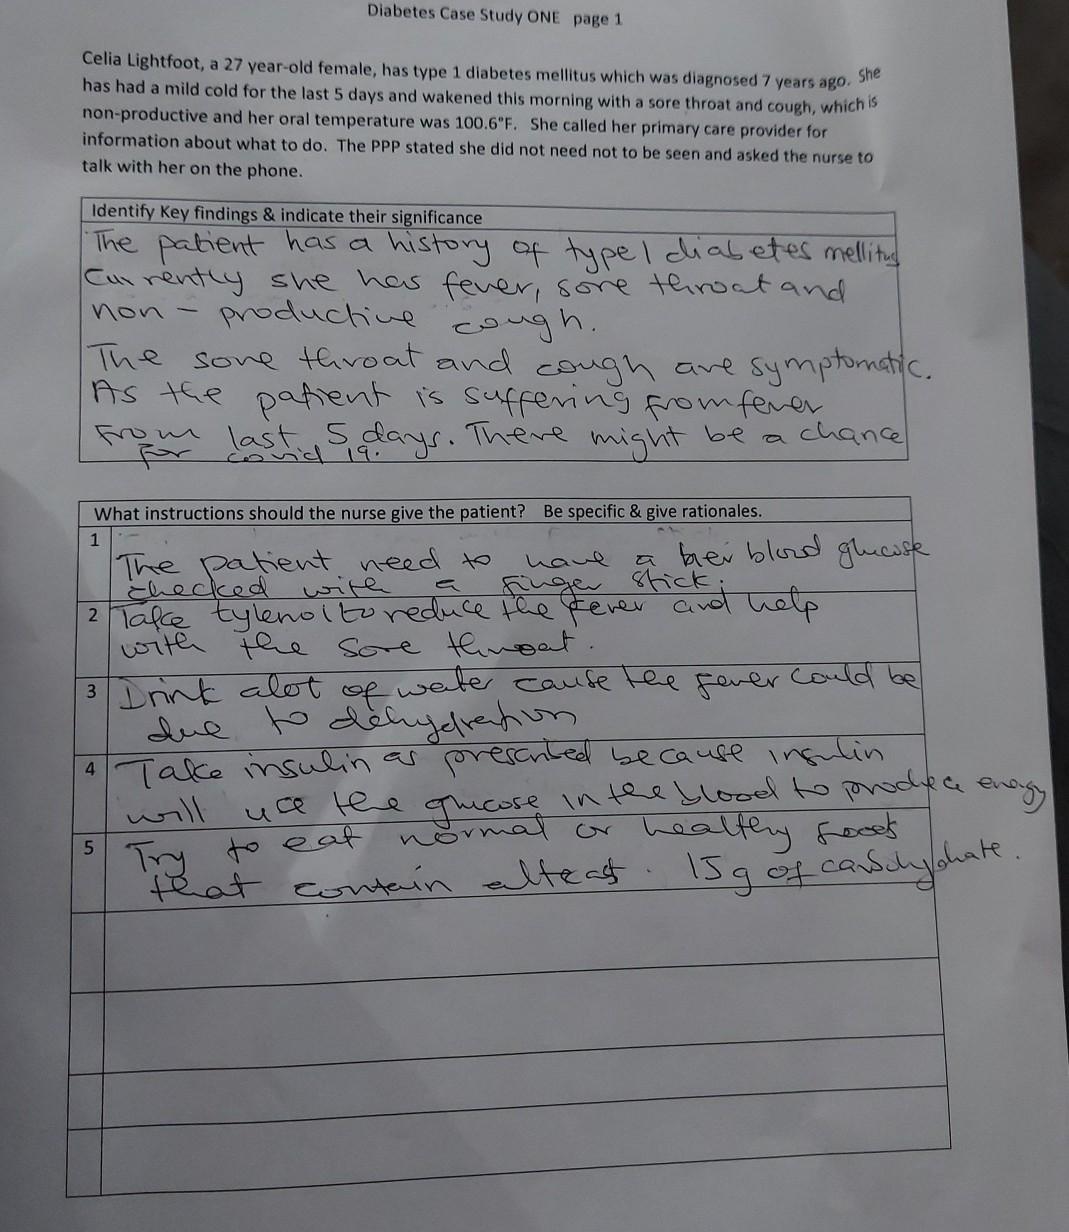 Diabetes Case Study ONE page 1
Celia Lightfoot, a 27 year-old female, has type 1 diabetes mellitus which was diagnosed 7 years ago. She
has had a mild cold for the last 5 days and wakened this morning with a sore throat and cough, which is
non-productive and her oral temperature was 100.6°F. She called her primary care provider for
information about what to do. The PPP stated she did not need not to be seen and asked the nurse to
talk with her on the phone.
Identify Key findings & indicate their significance
The patient has a history of type 1 diabetes mellitus
Currently she has fever, sore throat and
non - productive cough.
The sore throat and cough are symptomatic.
As the patient is suffering from fever
From last 5 days. There might be a chance
for covid 19.
What instructions should the nurse give the patient? Be specific & give rationales.
1
The patient need to have a her blood glucose
checked with a finger stick.
2 Take tylenol to reduce the fever and help
with the sore throat.
3 Drink alot of water cause the fever could be
due to dehydration
4 Take insulin as prescribed because insulin
will use the glucose in the blood to produce energy
5 Try to eat normal or healthy foods
that contain atleast 15g of carbohydrate.